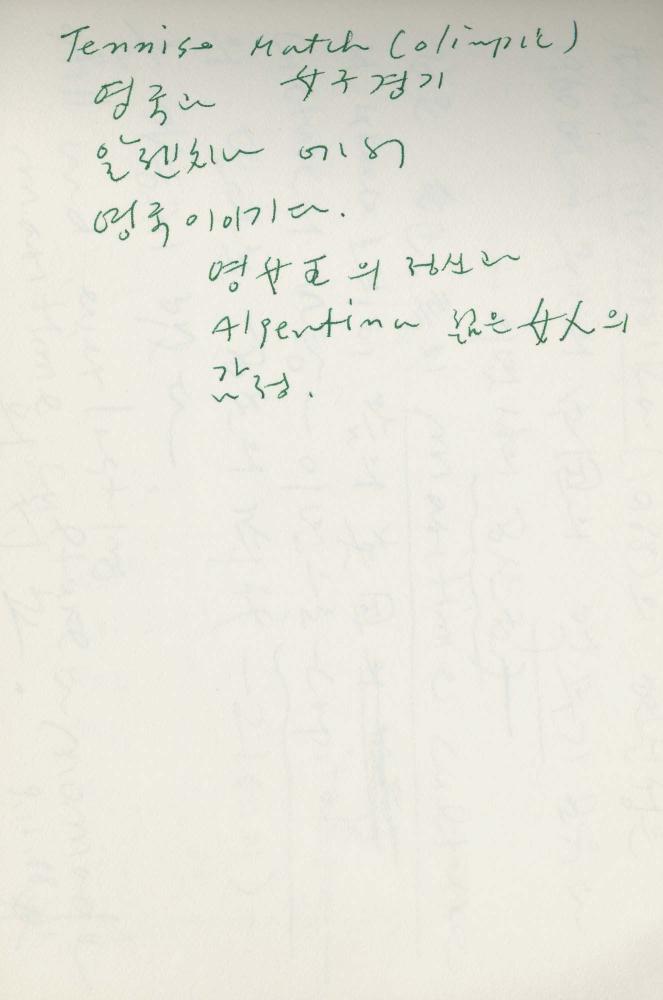 Tennise Match (olimpic)
영국과 女子 경기
알렌치나 에서
영국이 이기다.
영女王의 정신과
Algentina 젊은 女人의
감정.